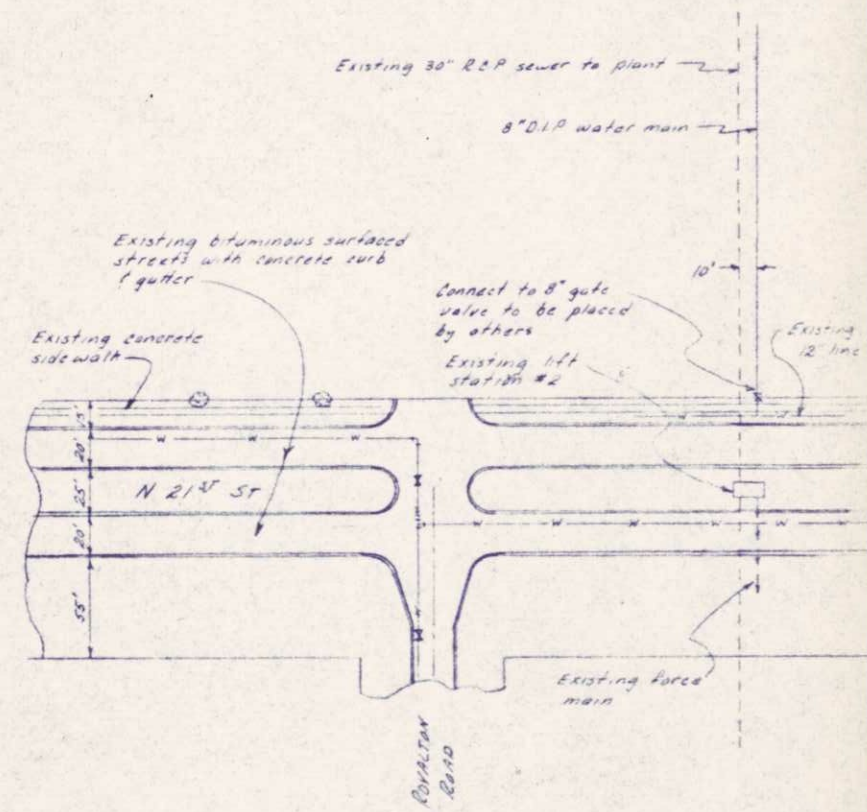 Existing 30" R.C.P sewer to plant
8" D.I.P water main
Existing bituminous surfaced
streets with concrete curb
& gutter
10'
Connect to 8" gate
valve to be placed
by others
Existing
12" line
Existing concrete
sidewalk
Existing lift
station #2
15'
W W W
20'
N 21ST ST
25'
W W W W W
20'
55'
Existing force
main
ROYALTON
ROAD